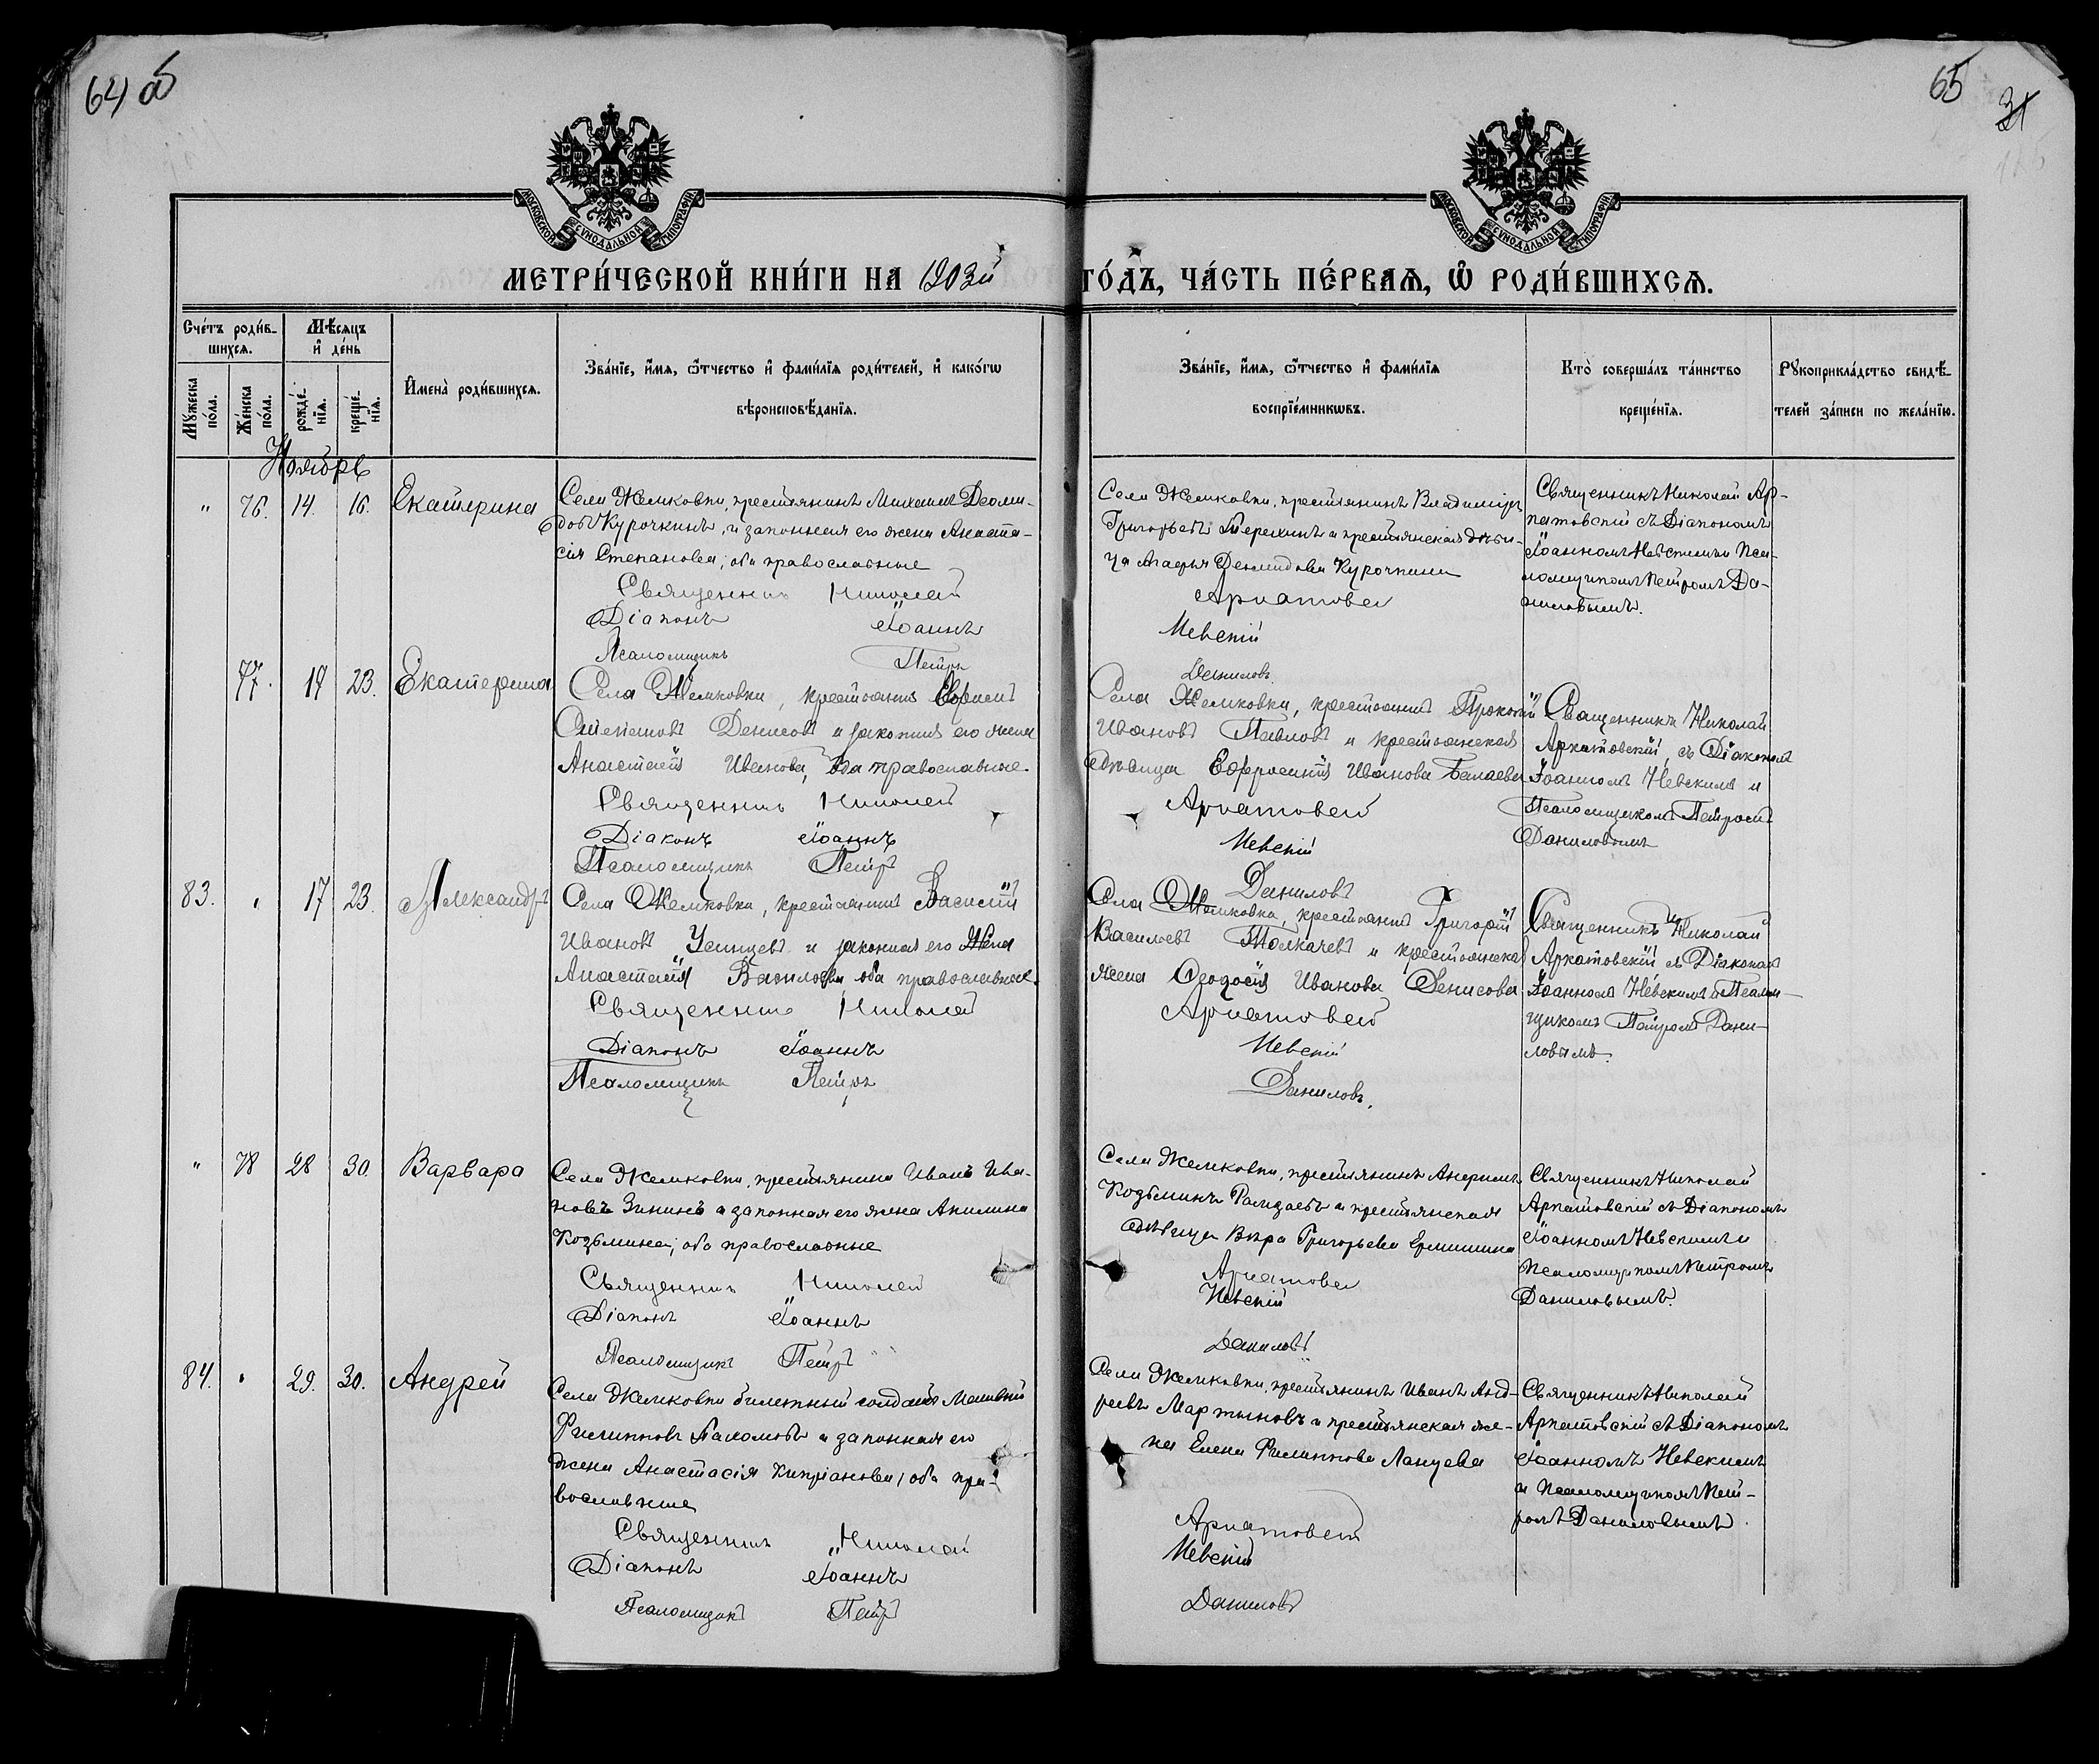 64 об
65
31
МОСКОВСКОЙ СѴНОДАЛЬНОЙ ТИПОГРАФІИ
МОСКОВСКОЙ СѴНОДАЛЬНОЙ ТИПОГРАФІИ
МЕТРИ́ЧЕСКОЙ КНИ́ГИ НА 1903й ГО́ДЪ, ЧА́СТЬ ПЕ́РВАѦ, Ѡ҆ РОДИ́ВШИХСѦ.
Сче́тъ роди́в-
шихсѧ.
Мѣ́сѧцъ
и҆ де́нь
Мꙋ́жеска
по́ла.
Же́нска
по́ла.
рожде́-
нїѧ.
креще́-
нїѧ.
И҆мена̀ роди́вшихсѧ.
Зва́нїе, и҆́мѧ, ѻ҆́тчество и҆ фами́лїѧ роди́телей, и҆ како́гѡ
вѣроисповѣ́данїѧ.
Зва́нїе, и҆́мѧ, ѻ҆́тчество и҆ фами́лїѧ
воспрїе́мникѡвъ.
Кто̀ соверша́лъ та́инство
креще́нїѧ.
Рꙋкоприкла́дство свидѣ́-
телей за́писи по жела́нїю.
Ноябрь
" 76. 14. 16. Екатерина
Села Жемковки, крестьянинъ Михаилъ
Курочкинъ, и законная его жена Анаста-
сія Степанова; оба православные
Священникъ Николай
Діаконъ Іоаннъ
Псаломщикъ Петръ
Села Жемковки, крестьянинъ Владиміръ
Григорьевъ Терехинъ и крестьянская дѣви-
ца Агафья Демидова Курочкина
Аркатовскій
Невскій
Даниловъ
Священникъ Николай Ар-
катовскій съ Діакономъ
Іоанномъ Невскимъ и Пса-
ломщикомъ Петромъ Да-
ниловымъ.
77. 19 23. Екатерина
Села Жемковки, крестьянинъ Ефремъ
Степановъ Денисовъ и законная его жена
Анастасія Иванова, оба православные.
Священникъ Николай
Діаконъ Іоаннъ
Псаломщикъ Петръ
Села Жемковки, крестьянинъ Прокопій
Ивановъ Павловъ и крестьянская
дѣвица Ефросинія Иванова Балаева
Аркатовскій
Невскій
Даниловъ
Священникъ Николай
Аркатовскій, съ Діакономъ
Іоанномъ Невскимъ и
Псаломщикомъ Петромъ
Даниловымъ
83. " 17 23. Александръ
Села Жемковки, крестьянинъ Василій
Ивановъ и законная его жена
Анастасія Васильева, оба православные.
Священникъ Николай
Діаконъ Іоаннъ
Псаломщикъ Петръ
Села Жемковки, крестьянинъ Григорій
Васильевъ Толкачевъ и крестьянская
жена Ѳеодосія Иванова Денисова
Аркатовскій
Невскій
Даниловъ.
Священникъ Николай
Аркатовскій съ Діакономъ
Іоанномъ Невскимъ и Псалом-
щикомъ Петромъ Дани-
ловымъ.
" 78 28 30. Варвара
Села Жемковки, крестьянинъ Иванъ Ива-
новъ Зининъ и законная его жена Акилина
Козьмина; оба православные
Священникъ Николай
Діаконъ Іоаннъ
Псаломщикъ Петръ
Села Жемковки, крестьянинъ
Козьминъ и крестьянская
дѣвица Вѣра Григорьева Еришина
Аркатовскій
Невскій
Даниловъ
Священникъ Николай
Аркатовскій съ Діакономъ
Іоанномъ Невскимъ и
Псаломщикомъ Петромъ
Даниловымъ.
84. " 29. 30. Андрей
Села Жемковки билетный солдатъ Матвѣй
Филипповъ Пахомовъ и законная его
жена Анастасія Кипріанова, оба пра-
вославные
Священникъ Николай
Діаконъ Іоаннъ
Псаломщикъ Петръ
Села Жемковки, крестьянинъ Иванъ Анд-
реевъ Мартыновъ и крестьянская же-
на Елена Филиппова Лануева
Аркатовскій
Невскій
Даниловъ
Священникъ Николай
Аркатовскій съ Діакономъ
Іоанномъ Невскимъ
и Псаломщикомъ Пет-
ромъ Даниловымъ.